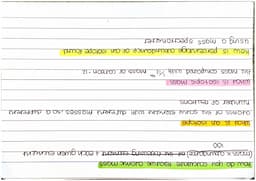 How do you calculate relative atomic mass
(mass x abundance) of the following element + each given element
100
What is an isotope
atoms of the same element with different masses different
number of neutrons
What is isotopic mass
the mass compared with 1/12 mass of carbon 12
How is percentage abundance of an isotope found
using a mass spectrometer